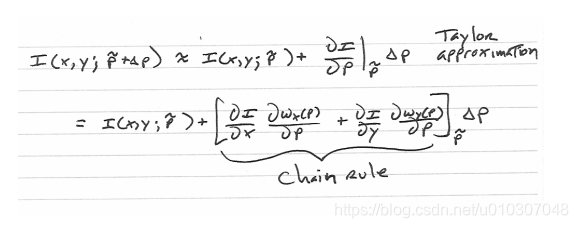 I(x,y; p̃+Δp) ≈ I(x,y; p̃) + ∂I/∂p |p̃ Δp Taylor approximation
= I(x,y; p̃) + [∂I/∂x ∂wx(p)/∂p + ∂I/∂y ∂wy(p)/∂p]p̃ Δp
Chain Rule
https://blog.csdn.net/u010307048